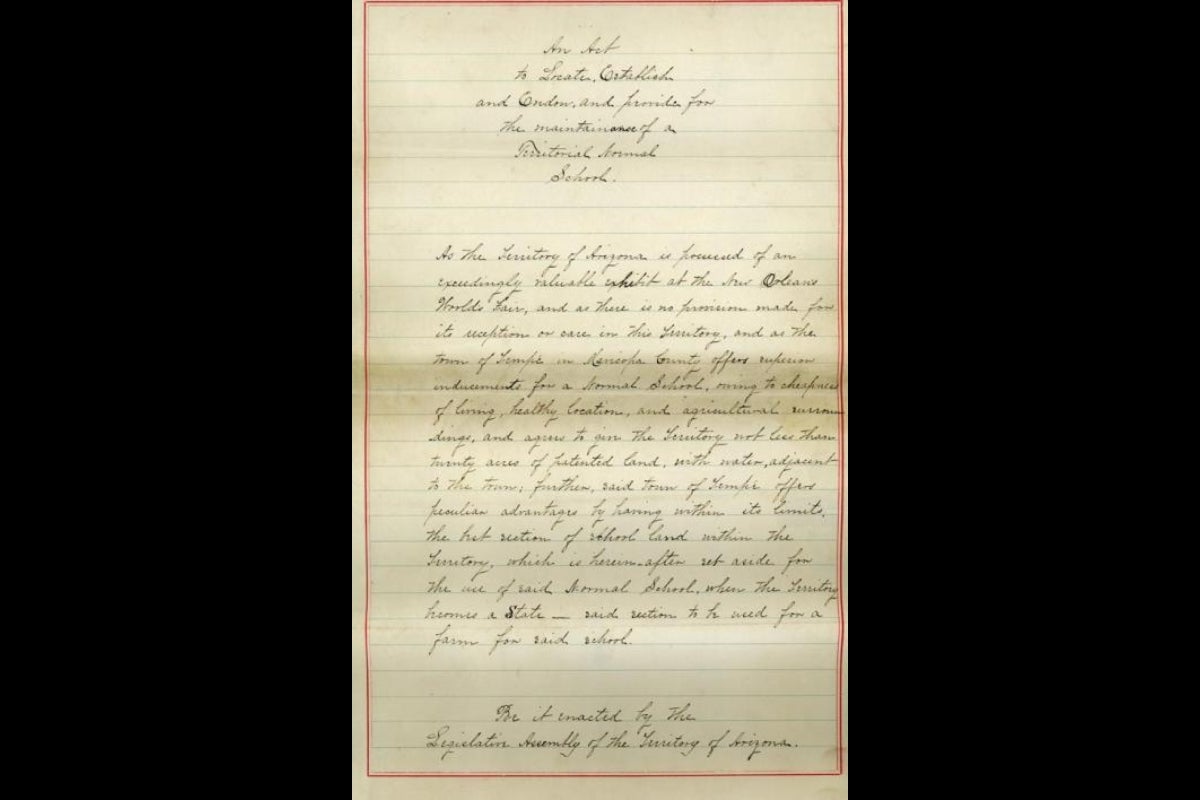 An Act
to Locate, Establish
and Endow, and provide for
the maintainance of a
Territorial Normal
School.
As the Territory of Arizona is possessed of an
exceedingly valuable exhibit at the New Orleans
Worlds Fair, and as there is no provision made for
its reception or care in this Territory, and as the
town of Tempe in Maricopa County offers superior
inducements for a Normal School, owing to cheapness
of living, healthy location, and agricultural surroun
dings, and agrees to give the Territory not less than
twenty acres of patented land, with water, adjacent
to the town; further, said town of Tempe offers
peculiar advantages by having within its limits,
the best section of school land within the
Territory, which is herein-after set aside for
the use of said Normal School, when the Territory
becomes a State — said section to be used for a
farm for said school.
Be it enacted by the
Legislative Assembly of the Territory of Arizona.